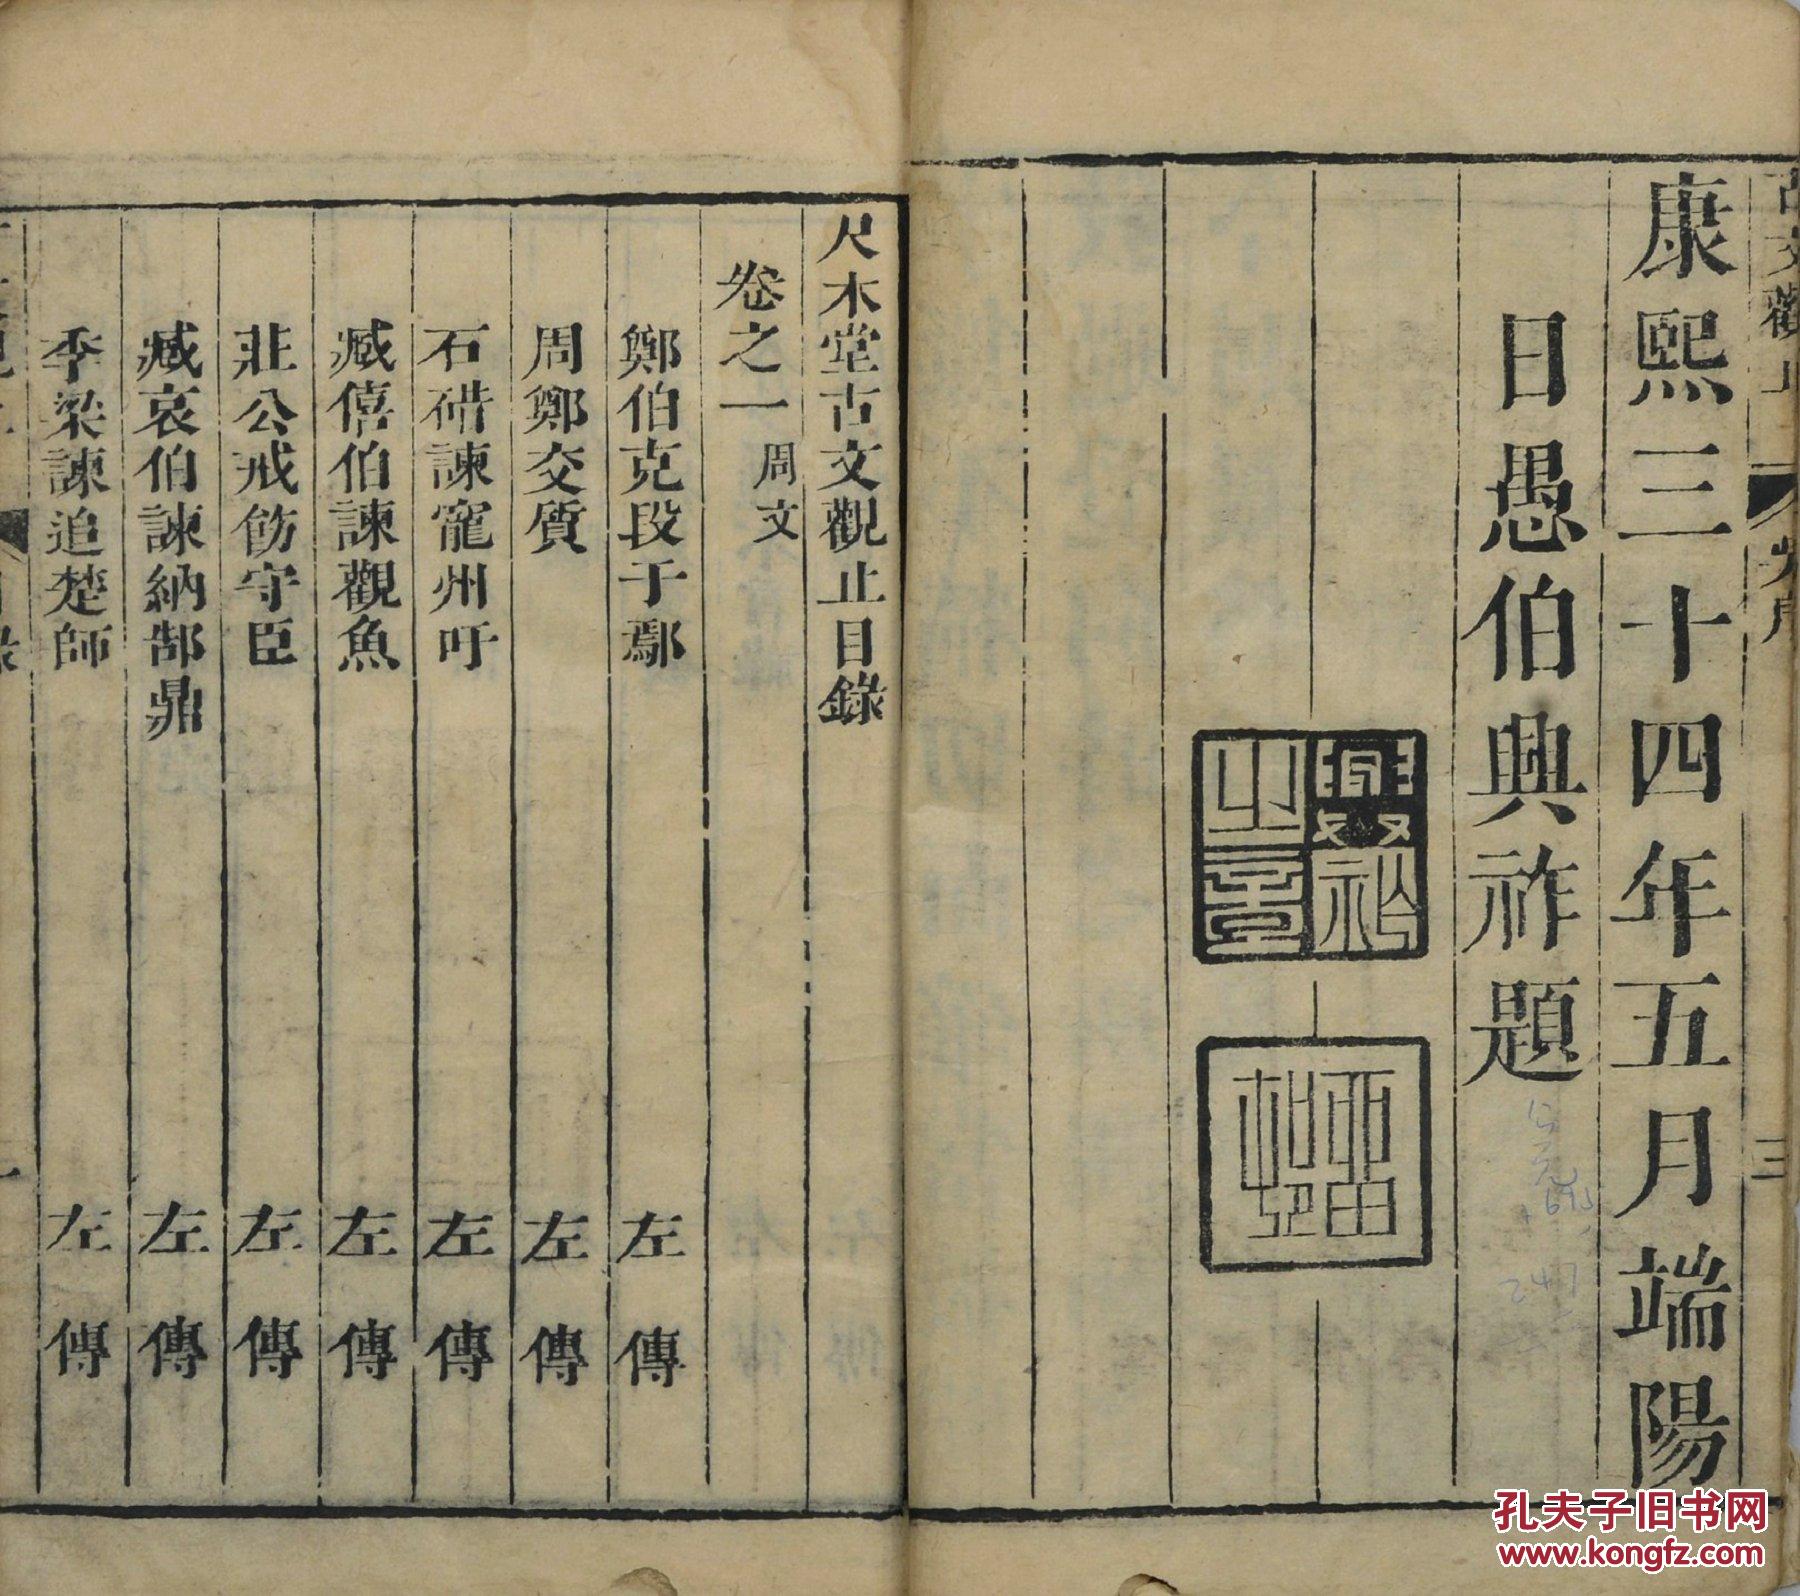 康熙三十四年五月端陽
日愚伯興祚題
興祚之章
尺木堂古文觀止目錄
卷之一 周文
鄭伯克段于鄢 左傳
周鄭交質 左傳
石碏諫寵州吁 左傳
臧僖伯諫觀魚 左傳
莊公戒飭守臣 左傳
臧哀伯諫納郜鼎 左傳
季梁諫追楚師 左傳
孔夫子旧书网
www.kongfz.com